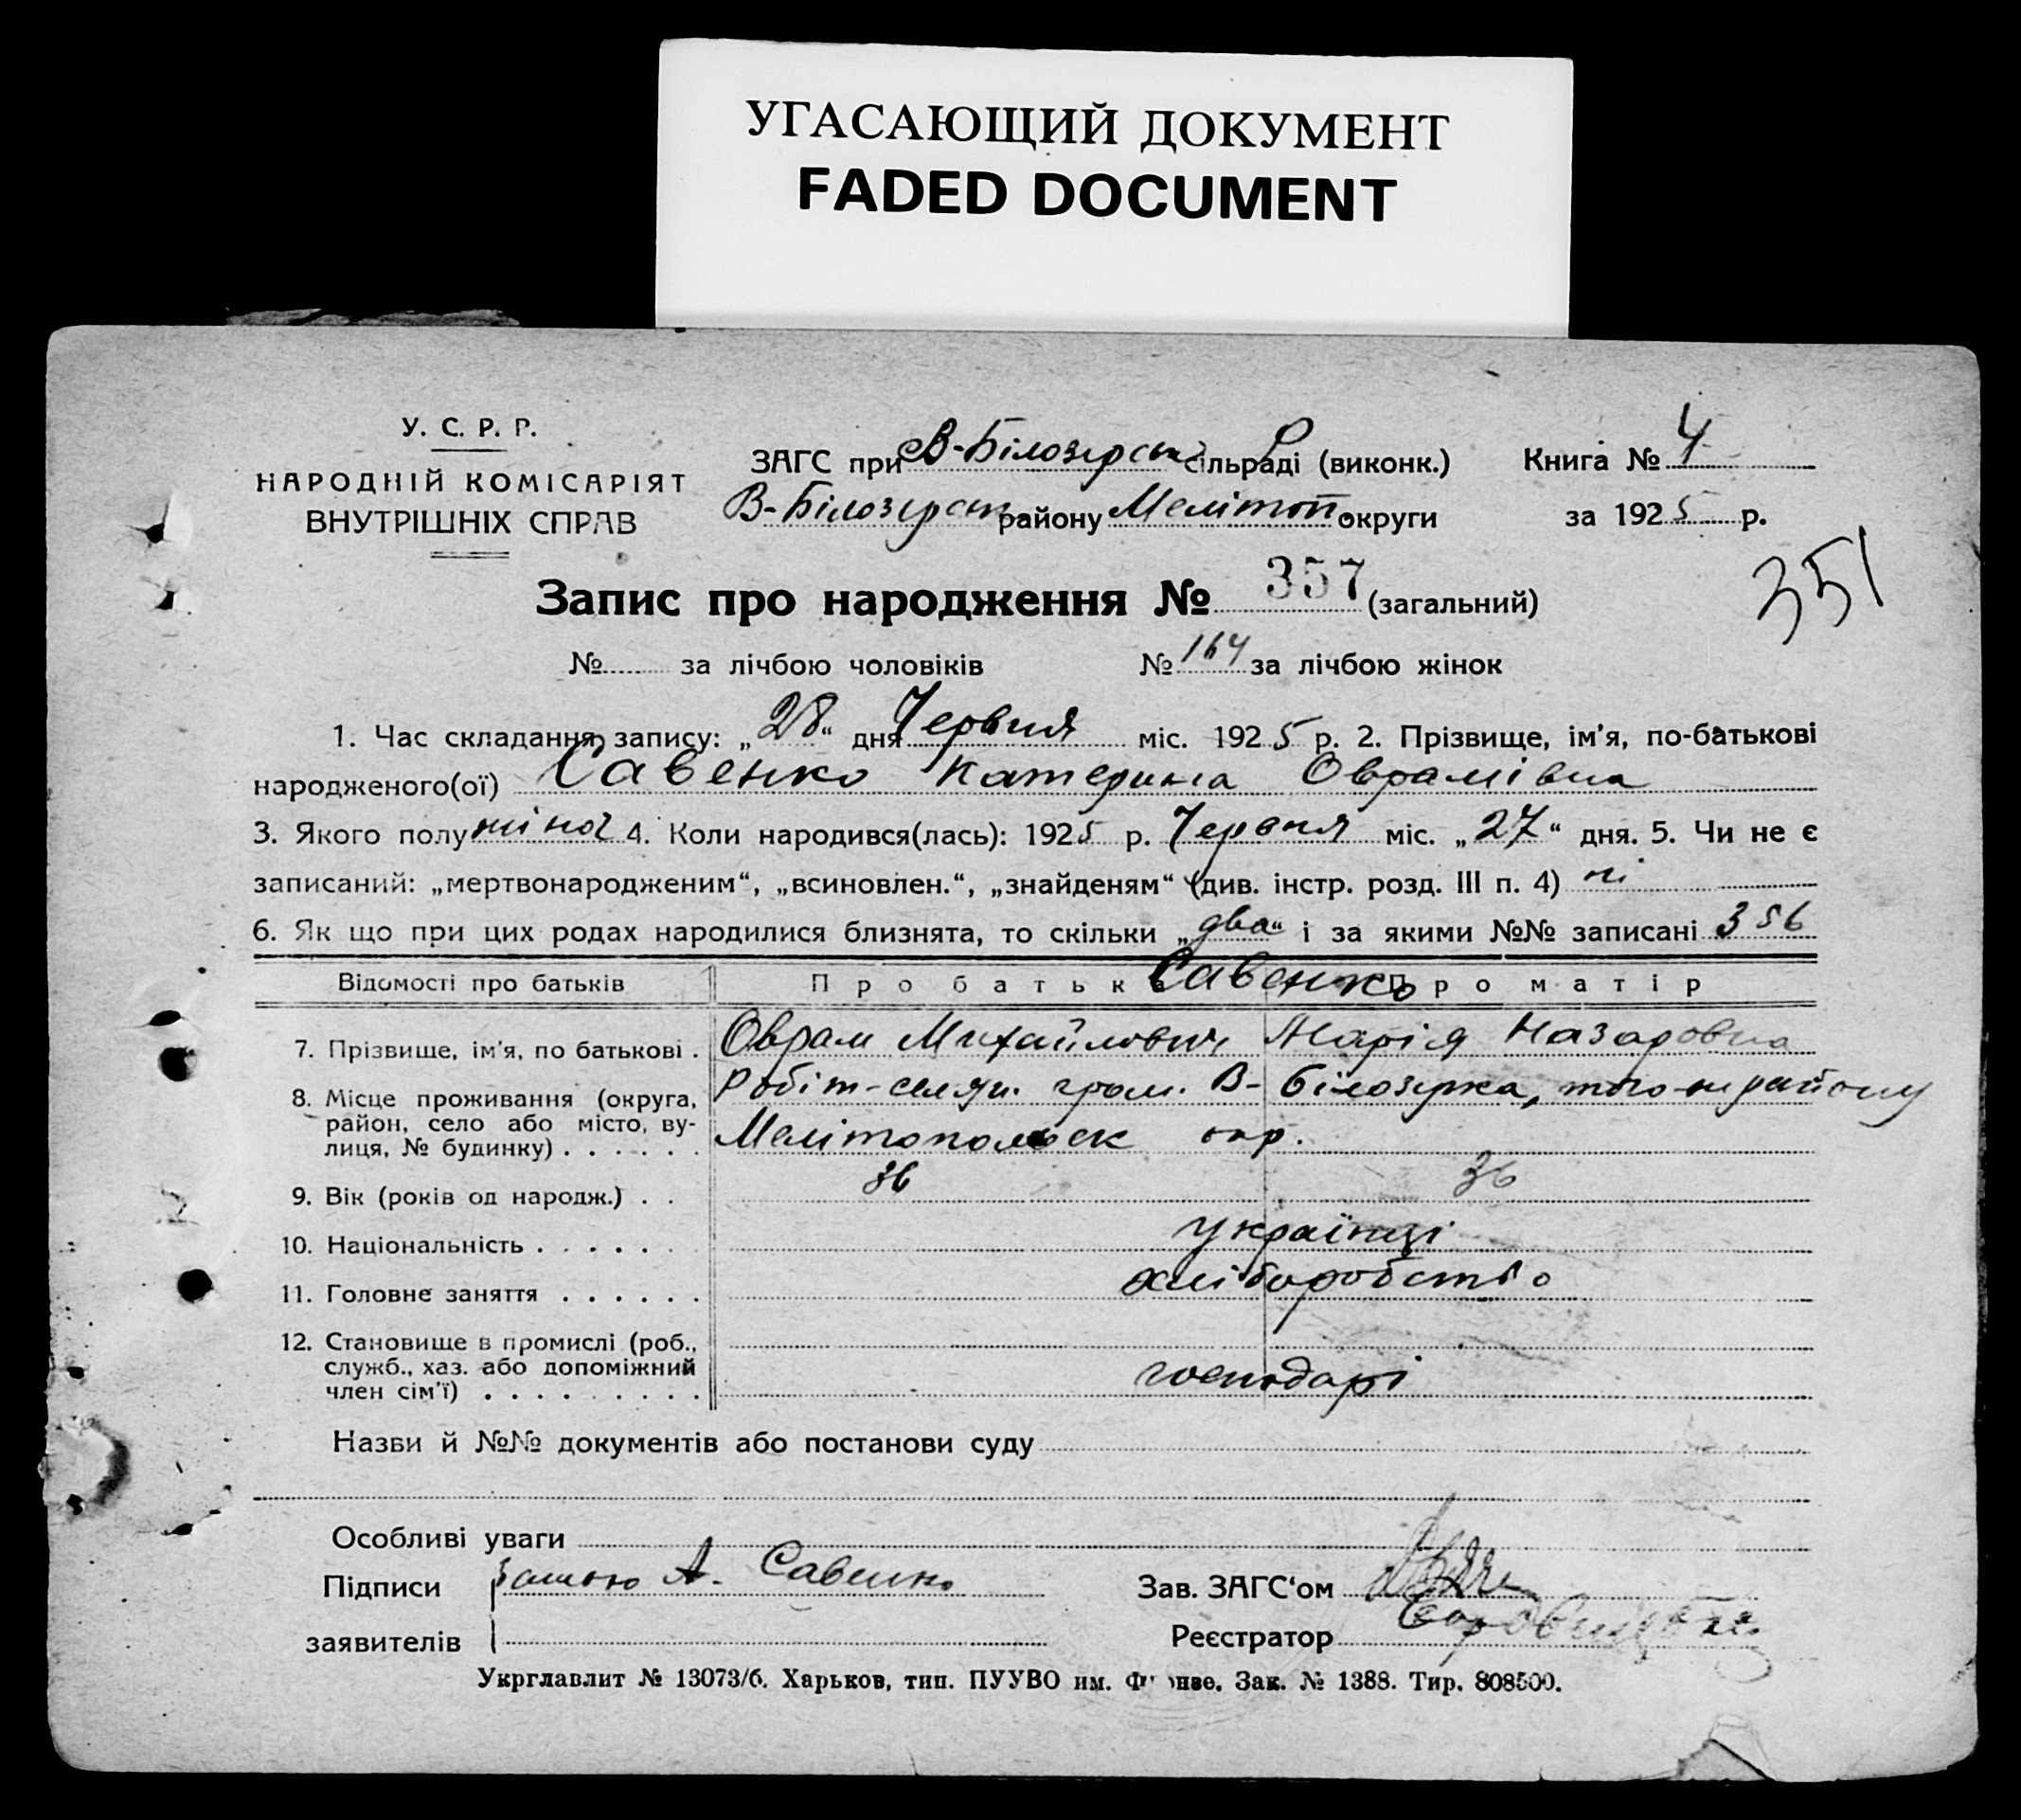 УГАСАЮЩИЙ ДОКУМЕНТ
FADED DOCUMENT
У. С. Р. Р.
НАРОДНІЙ КОМІСАРІЯТ
ВНУТРІШНІХ СПРАВ
ЗАГС при В-Білозерск сільраді (виконк.)
В-Білозерск району Мелітоп. округи
Книга № 4
за 1925 р.
351
Запис про народження № 357 (загальний)
№ за лічбою чоловіків № 164 за лічбою жінок
1. Час складання запису: „28“ дня Червня міс. 1925 р. 2. Прізвище, ім'я, по-батькові
народженого(ої) Савенко Катерина Оврамівна
3. Якого полу жіноч 4. Коли народився(лась): 1925 р. Червня міс. „27“ дня. 5. Чи не є
записаний: „мертвонародженим“, „всиновлен.“, „знайденям“ (див. інстр. розд. III п. 4) ні
6. Як що при цих родах народилися близнята, то скільки „два“ і за якими №№ записані 356
Відомості про батьків Про батька Про матір
Савенко
7. Прізвище, ім'я, по батькові . Оврам Михайлович Марія Назаровна
8. Місце проживання (округа, район, село або місто, вулиця, № будинку) . . . . . . Робіт-селян. гром. В-Білозерка, того-ж району
Мелітопольск окр.
9. Вік (років од народж.) . . 36 36
10. Національність . . . . . . українці
11. Головне заняття . . . . . . хліборобство
12. Становище в промислі (роб., служб., хаз. або допоміжний член сім'ї) . . . . . . . . . господарі
Назви й №№ документів або постанови суду
Особливі уваги
Підписи А. Савенко
заявителів
Зав. ЗАГС‘ом
Реєстратор
Укрглавлит № 13073/б. Харьков, тип. ПУУВО им. Фрунзе. Зак. № 1388. Тир. 808500.